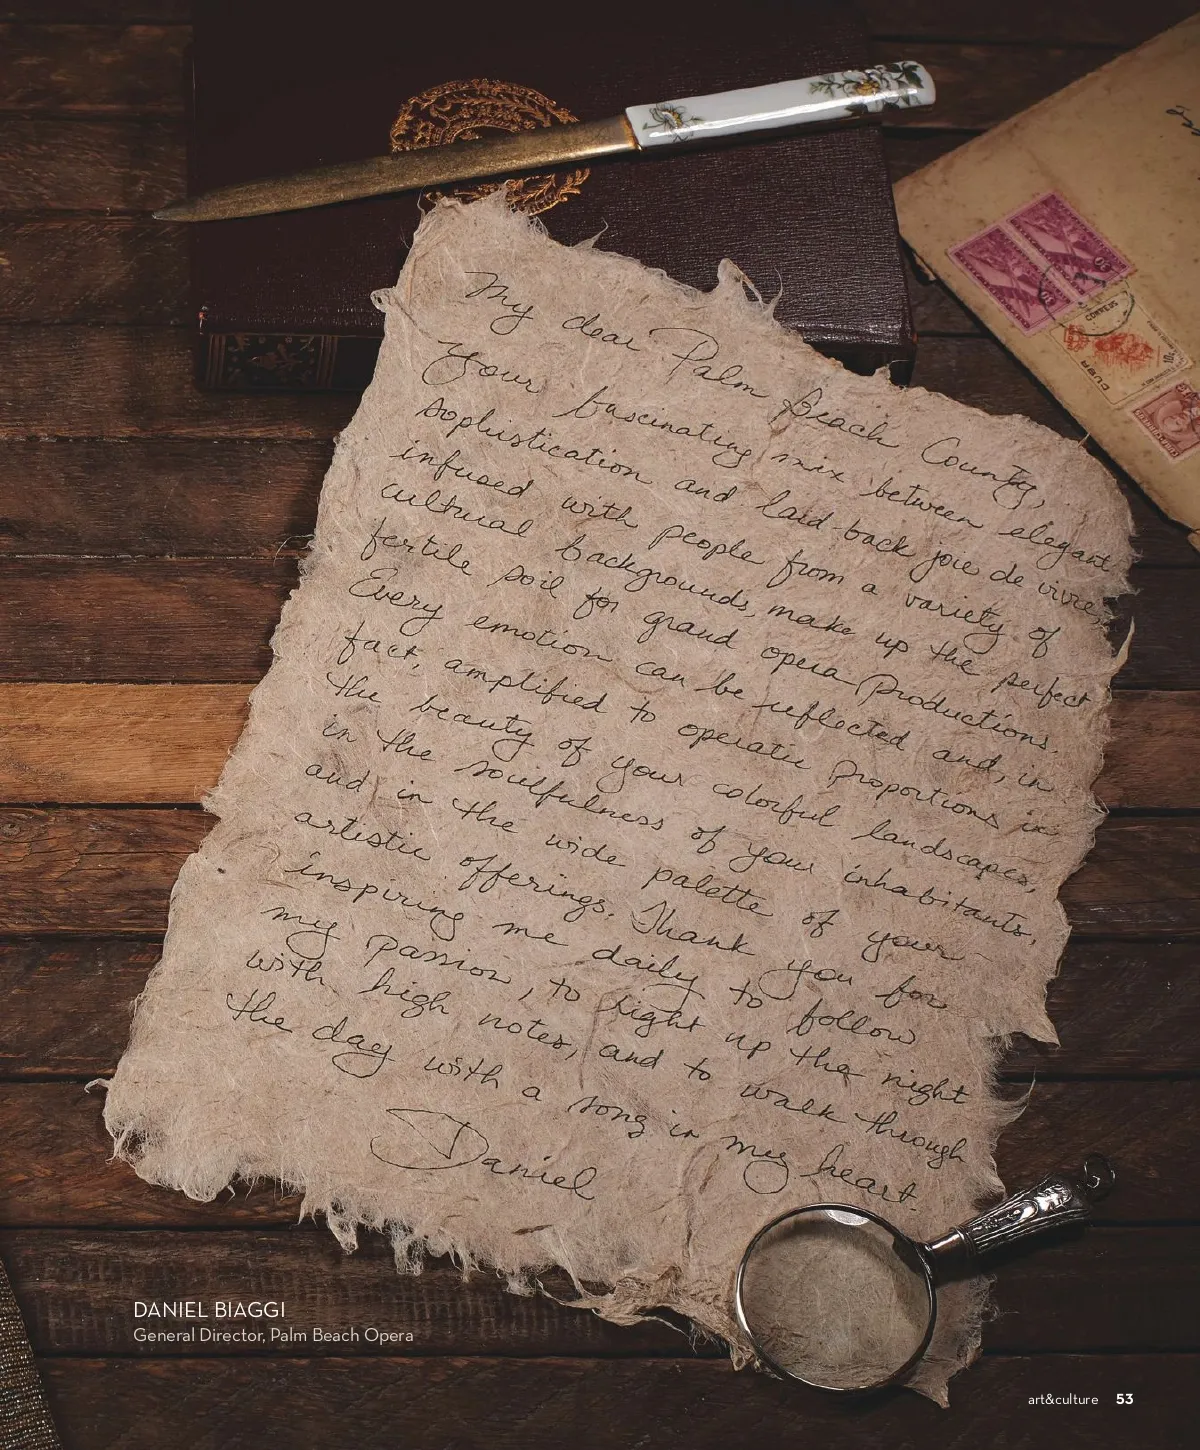 My dear Palm Beach County,
your fascinating mix between elegant
sophistication and laid-back joie de vivre,
infused with people from a variety of
cultural backgrounds, make up the perfect
fertile soil for grand opera productions.
Every emotion can be reflected and, in
fact, amplified to operatic proportions in
the beauty of your colorful landscapes,
in the soulfulness of your inhabitants,
and in the wide palette of your
artistic offerings. Thank you for
inspiring me daily to follow
my passion, to light up the night
with high notes, and to walk through
the day with a song in my heart.
Daniel
CORREOS
CUBA
DANIEL BIAGGI
General Director, Palm Beach Opera
art&culture 53